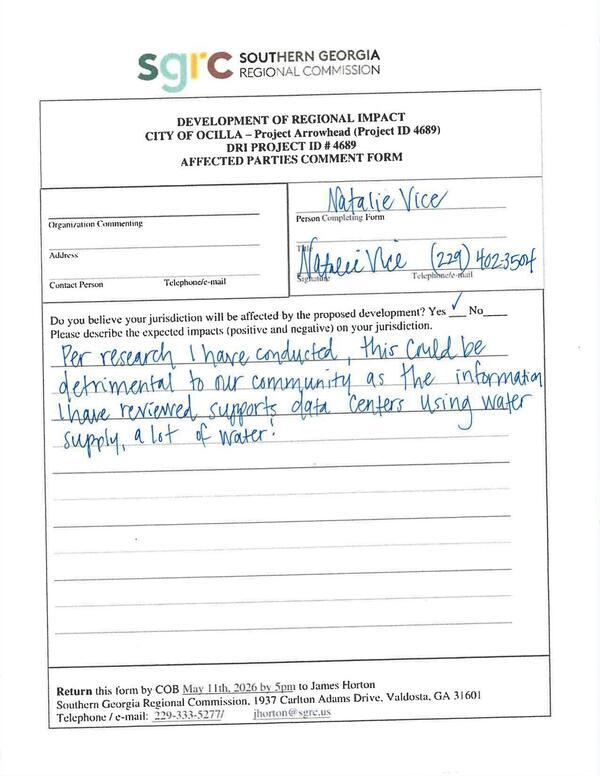 sgrc SOUTHERN GEORGIA
REGIONAL COMMISSION
DEVELOPMENT OF REGIONAL IMPACT
CITY OF OCILLA – Project Arrowhead (Project ID 4689)
DRI PROJECT ID # 4689
AFFECTED PARTIES COMMENT FORM
Organization Commenting
Address
Contact Person Telephone/e-mail
Natalie Vice
Person Completing Form
Title
Natalie Vice (229) 402-3504
Signature Telephone/e-mail
Do you believe your jurisdiction will be affected by the proposed development? Yes ✓ No
Please describe the expected impacts (positive and negative) on your jurisdiction.
Per research I have conducted, this could be
detrimental to our community as the information
I have reviewed supports data centers using water
supply, a lot of water!
Return this form by COB May 11th, 2026 by 5pm to James Horton
Southern Georgia Regional Commission, 1937 Carlton Adams Drive, Valdosta, GA 31601
Telephone / e-mail: 229-333-5277/ jhorton@sgrc.us